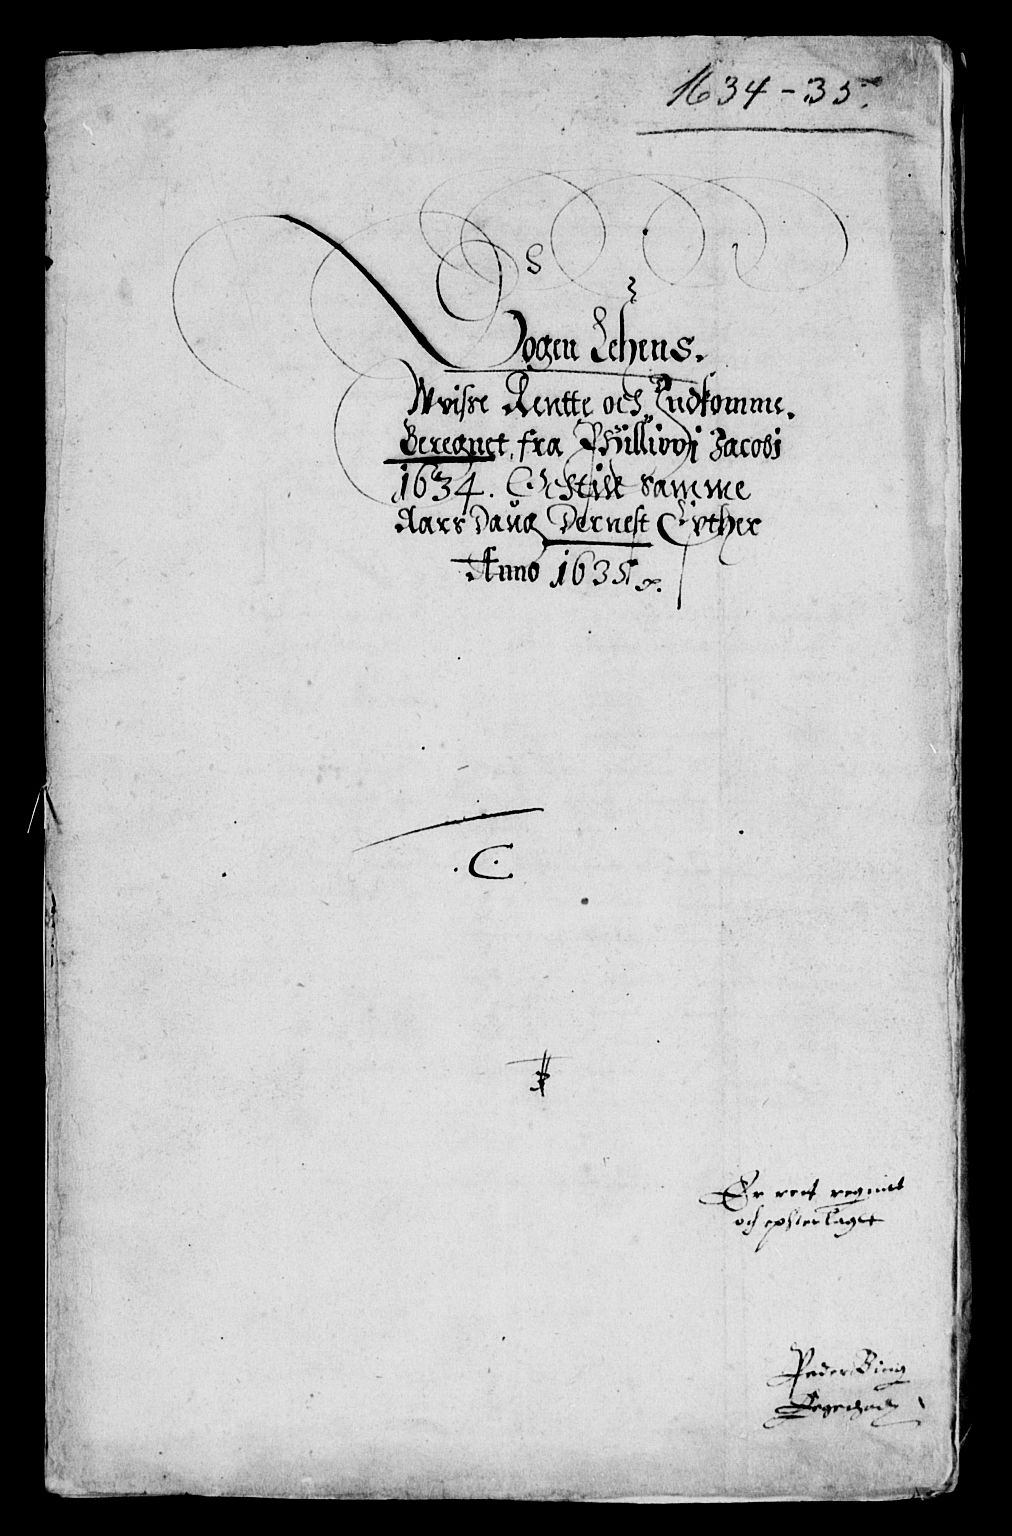 1634-35.
Vogen Lehens.
Wvisse Rentte och Indkomme.
Beregnet, fra Phillippi Jacobi
1634. Och til samme
Aars Daug Dernest Epther
Anno 1635
C
Er rect regnit
och epfterlaget
Peder Bing